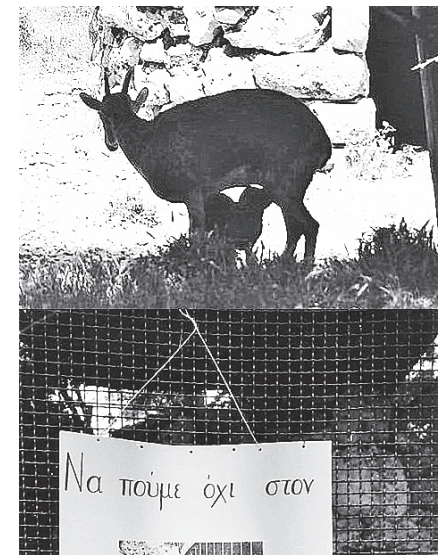 Να πούμε όχι στον